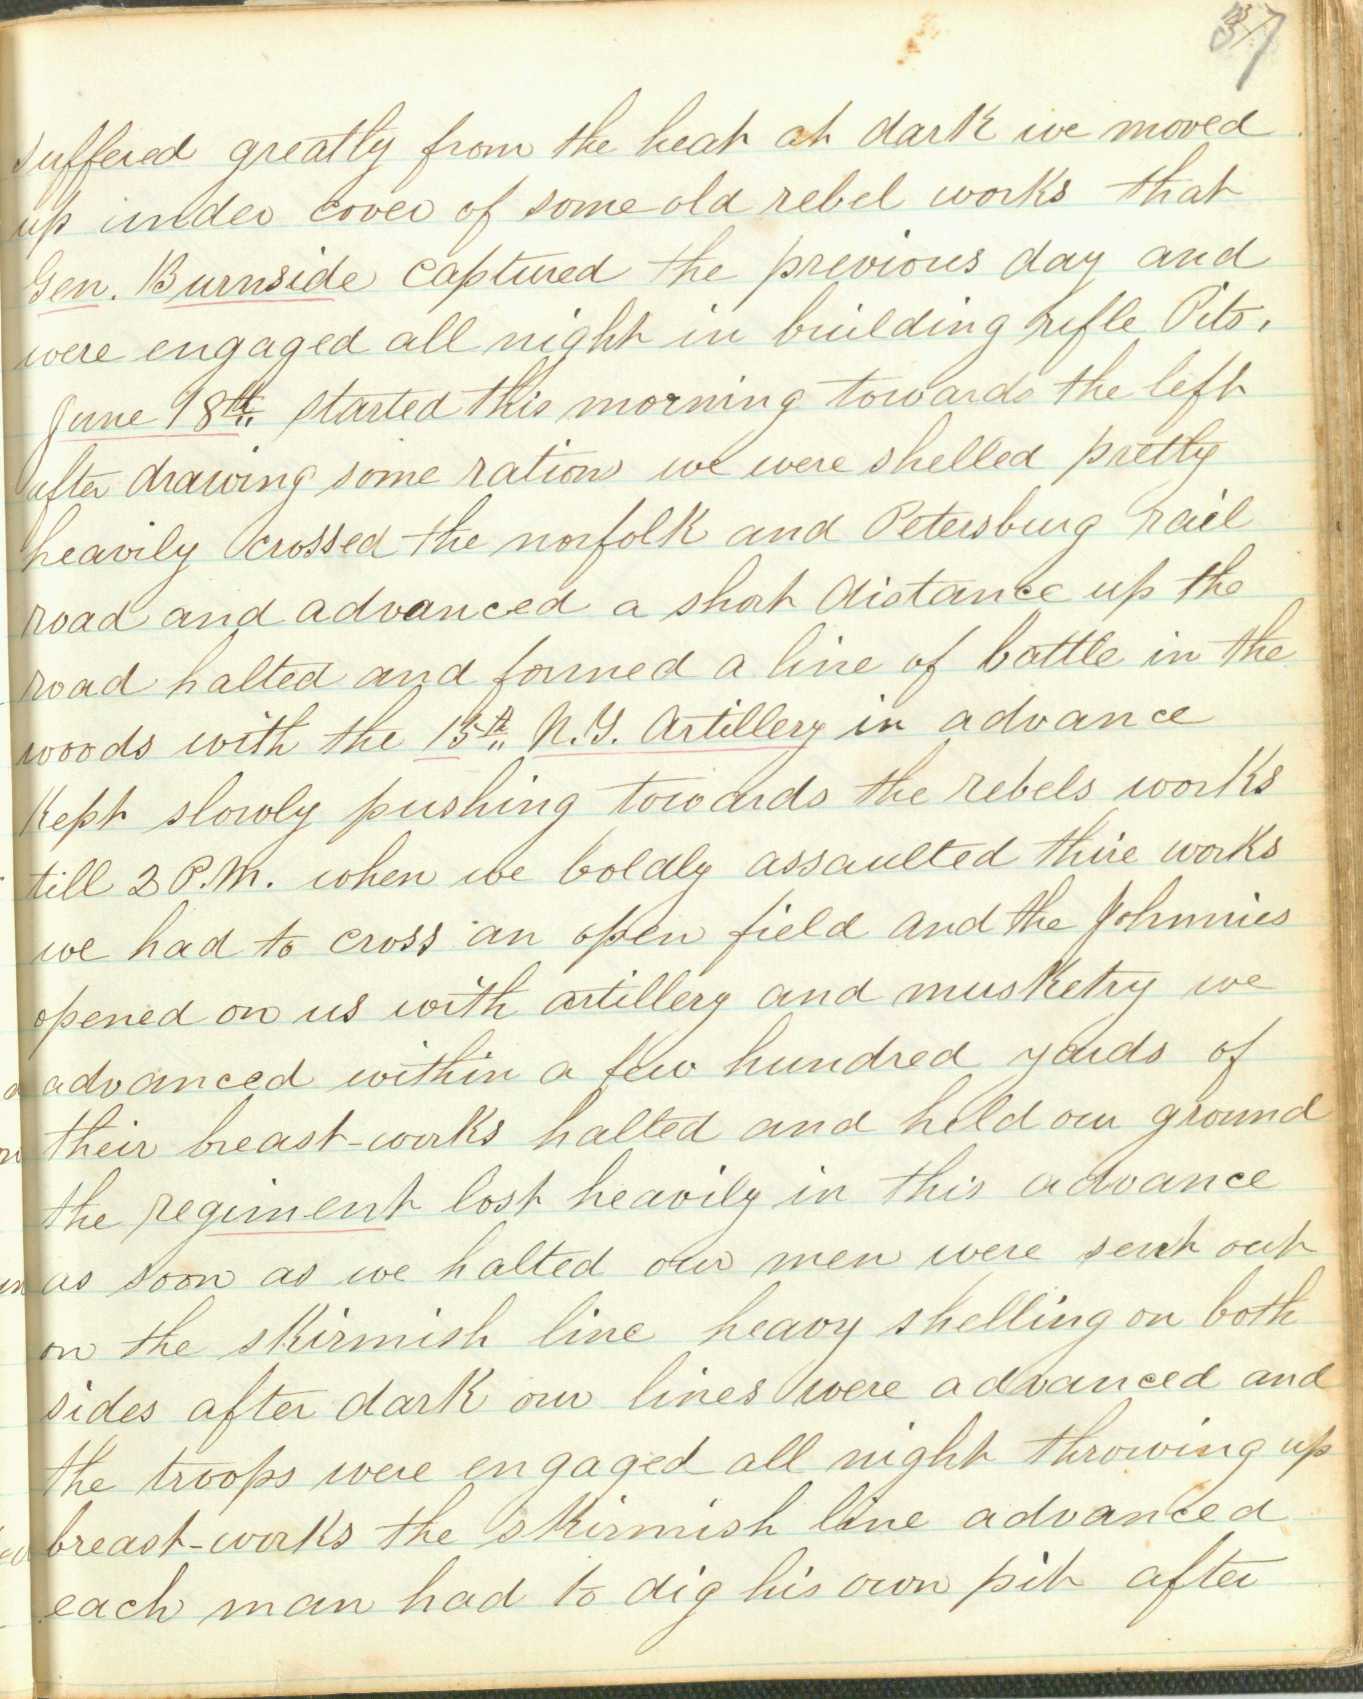 37
suffered greatly from the heat at dark we moved
up under cover of some old rebel works that
Gen. Burnside captured the previous day and
were engaged all night in building rifle Pits.
June 18th started this morning towards the left
after drawing some ration we were shelled pretty
heavily crossed the norfolk and Petersburg rail
road and advanced a short distance up the
road halted and formed a line of battle in the
woods with the 15th N.Y. Artillery in advance
Kept slowly pushing towards the rebels works
till 2 P.M. when we boldly assaulted thire works
we had to cross an open field and the Johnnies
opened on us with artillery and musketry we
advanced within a few hundred yards of
their breast-works halted and held our ground
the regiment lost heavily in this advance
as soon as we halted our men were sent out
on the skirmish line heavy shelling on both
sides after dark our lines were advanced and
the troops were engaged all night throwing up
breast-works the skirmish line advanced
each man had to dig his own pit after